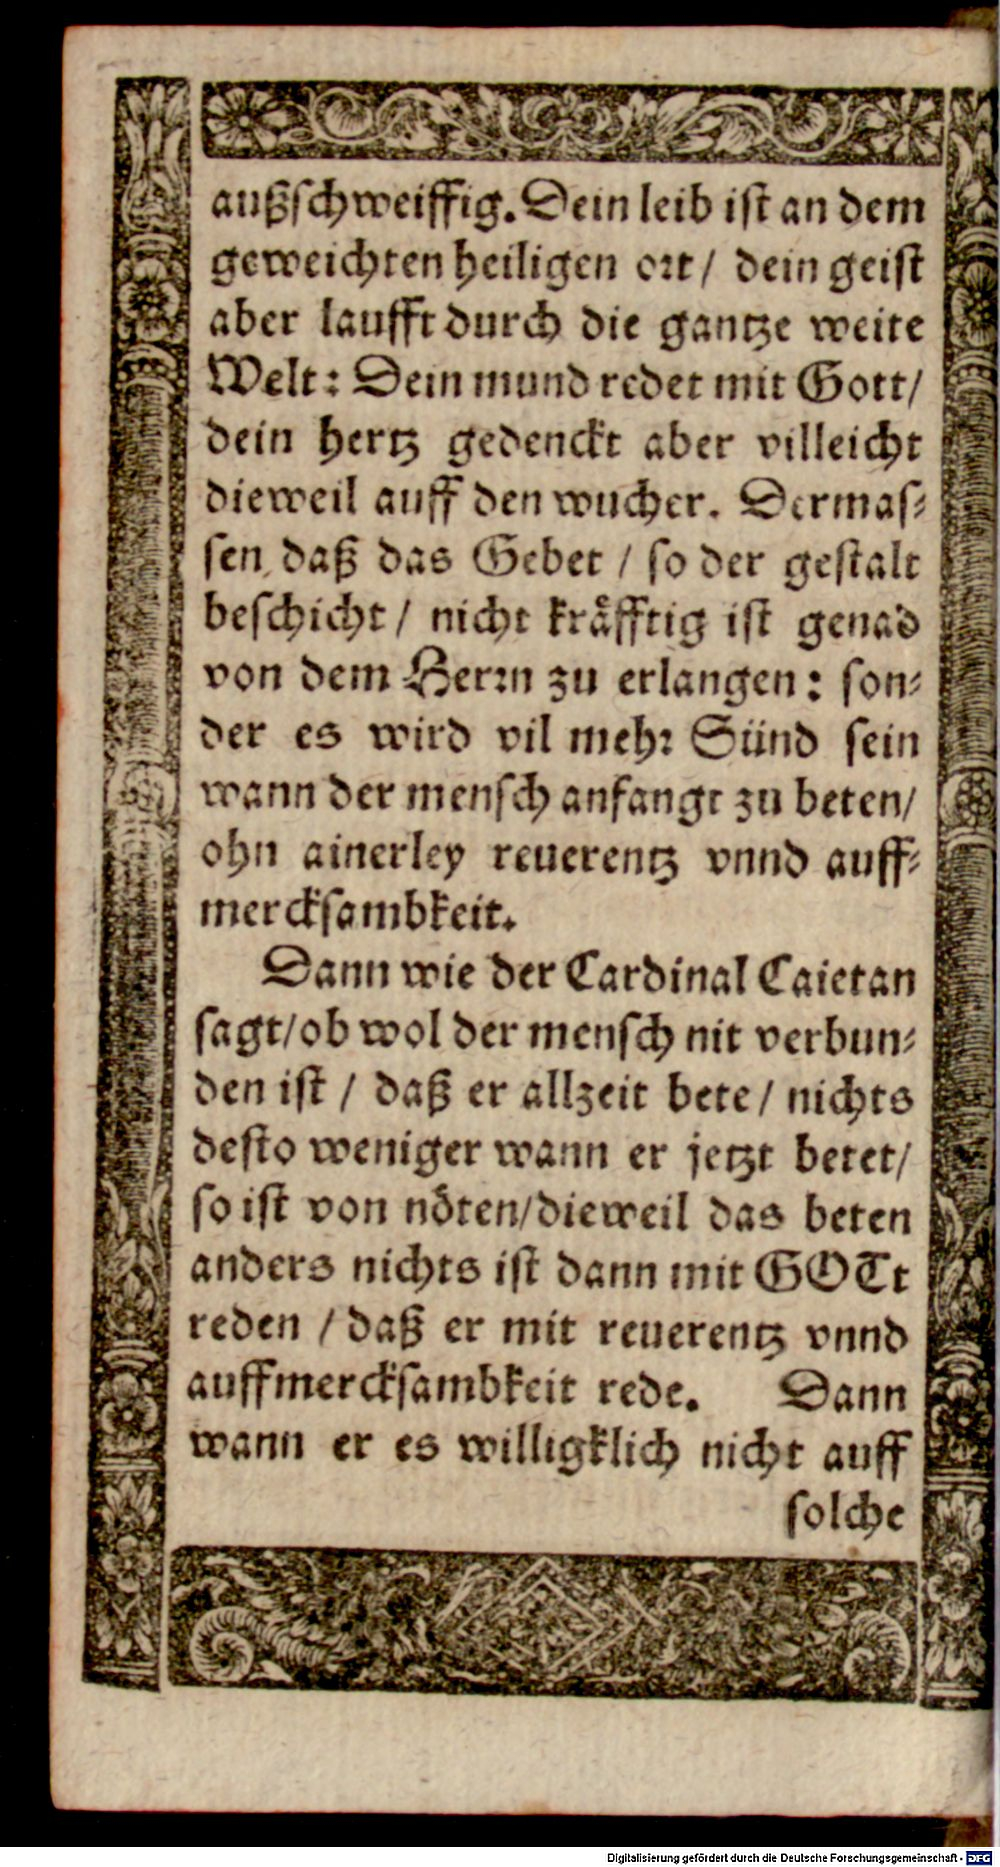 außschweiffig. Dein leib ist an dem
geweichten heiligen ort / dein geist
aber laufft durch die gantze weite
Welt: Dein mund redet mit Gott /
dein hertz gedenckt aber villeicht
dieweil auff den wucher. Dermas-
sen daß das Gebet / so der gestalt
beschicht / nicht kräfftig ist genad
von dem Herrn zu erlangen: son-
der es wird vil mehr Sünd sein
wann der mensch anfangt zu beten /
ohn ainerley reuerentz vnnd auff-
mercksambkeit.
Dann wie der Cardinal Caietan
sagt / ob wol der mensch nit verbun-
den ist / daß er allzeit bete / nichts
desto weniger wann er jetzt betet /
so ist von nöten / dieweil das beten
anders nichts ist dann mit GOTt
reden / daß er mit reuerentz vnnd
auffmercksambkeit rede. Dann
wann er es willigklich nicht auff
solche
Digitalisierung gefördert durch die Deutsche Forschungsgemeinschaft - DFG